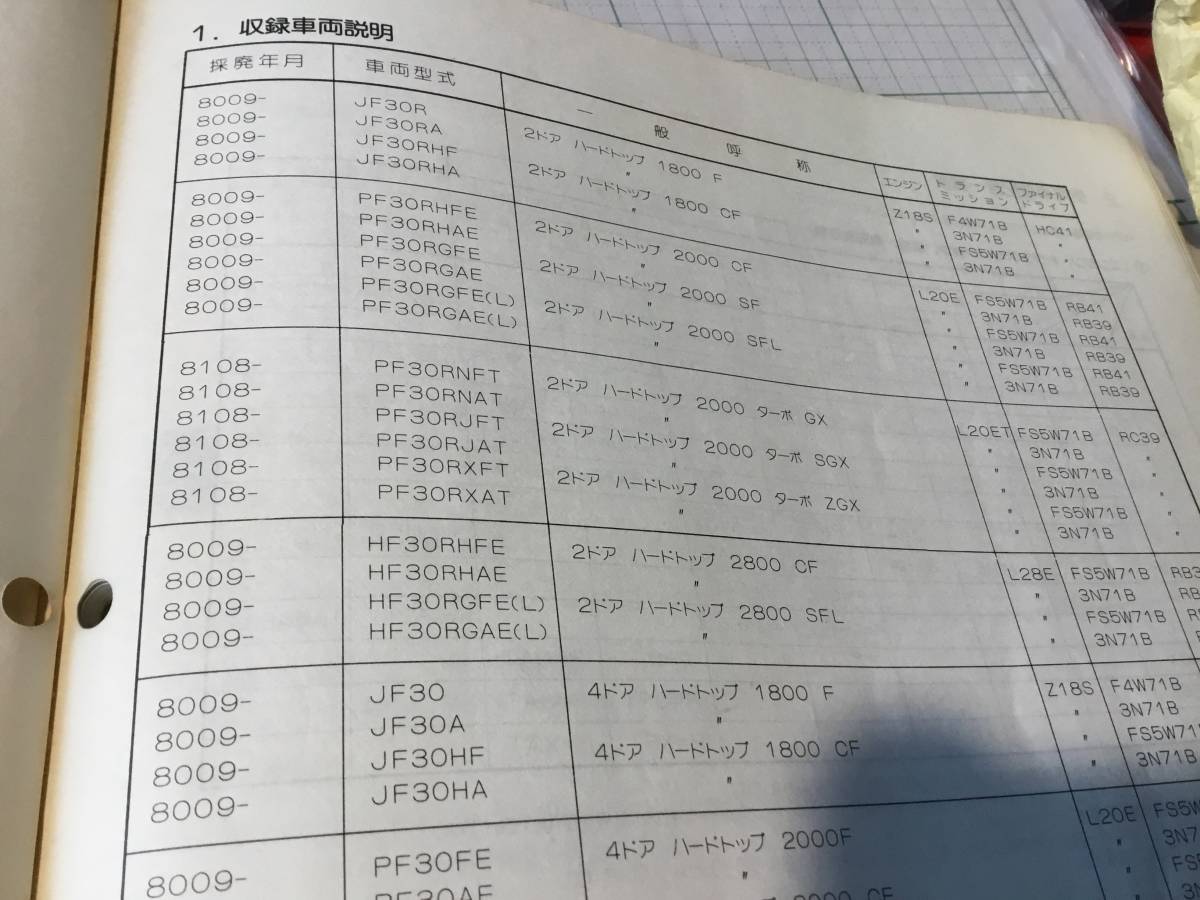 1. 収録車両説明
採廃年月 車両型式 一般呼称 エンジン トランスミッション ファイナルドライブ
8009- JF30R 2ドア ハードトップ 1800 F Z18S F4W71B HC41
8009- JF30RA 〃 〃 3N71B 〃
8009- JF30RHF 2ドア ハードトップ 1800 CF 〃 FS5W71B 〃
8009- JF30RHA 〃 〃 3N71B 〃
8009- PF30RHFE 2ドア ハードトップ 2000 CF L20E FS5W71B RB41
8009- PF30RHAE 〃 〃 3N71B RB39
8009- PF30RGFE 2ドア ハードトップ 2000 SF 〃 FS5W71B RB41
8009- PF30RGAE 〃 〃 3N71B RB39
8009- PF30RGFE(L) 2ドア ハードトップ 2000 SFL 〃 FS5W71B RB41
8009- PF30RGAE(L) 〃 〃 3N71B RB39
8108- PF30RNFT 2ドア ハードトップ 2000 ターボ GX L20ET FS5W71B RC39
8108- PF30RNAT 〃 3N71B 〃
8108- PF30RJFT 2ドア ハードトップ 2000 ターボ SGX 〃 FS5W71B 〃
8108- PF30RJAT 〃 〃 3N71B 〃
8108- PF30RXFT 2ドア ハードトップ 2000 ターボ ZGX 〃 FS5W71B 〃
8108- PF30RXAT 〃 〃 3N71B 〃
8009- HF30RHFE 2ドア ハードトップ 2800 CF L28E FS5W71B
8009- HF30RHAE 〃 〃 3N71B
8009- HF30RGFE(L) 2ドア ハードトップ 2800 SFL 〃 FS5W71B
8009- HF30RGAE(L) 〃 〃 3N71B
8009- JF30 4ドア ハードトップ 1800 F Z18S F4W71B
8009- JF30A 〃 〃 3N71B
8009- JF30HF 4ドア ハードトップ 1800 CF 〃
8009- JF30HA 〃 〃 3N71B
8009- PF30FE 4ドア ハードトップ 2000F L20E
PF30AE 〃 〃